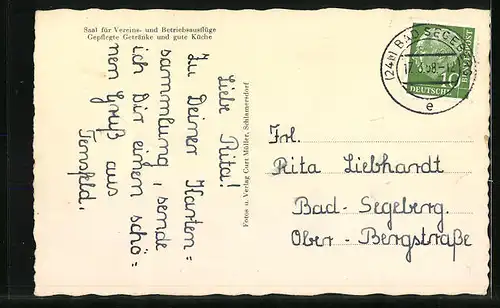 Saal für Vereins- und Betriebsausflüge
Gepflegte Getränke und gute Küche
Liebe Rita!
Zu Deiner Karten=
sammlung, sende
ich Dir einen schö=
nen Gruß aus
Tensfeld.
Fotos u. Verlag Curt Müller, Schlamersdorf
(24b) BAD SEGEB
e
10
DEUTSCHE
BUNDESPOST
Frl.
Rita Liebhardt
Bad-Segeberg.
Ober-Bergstraße